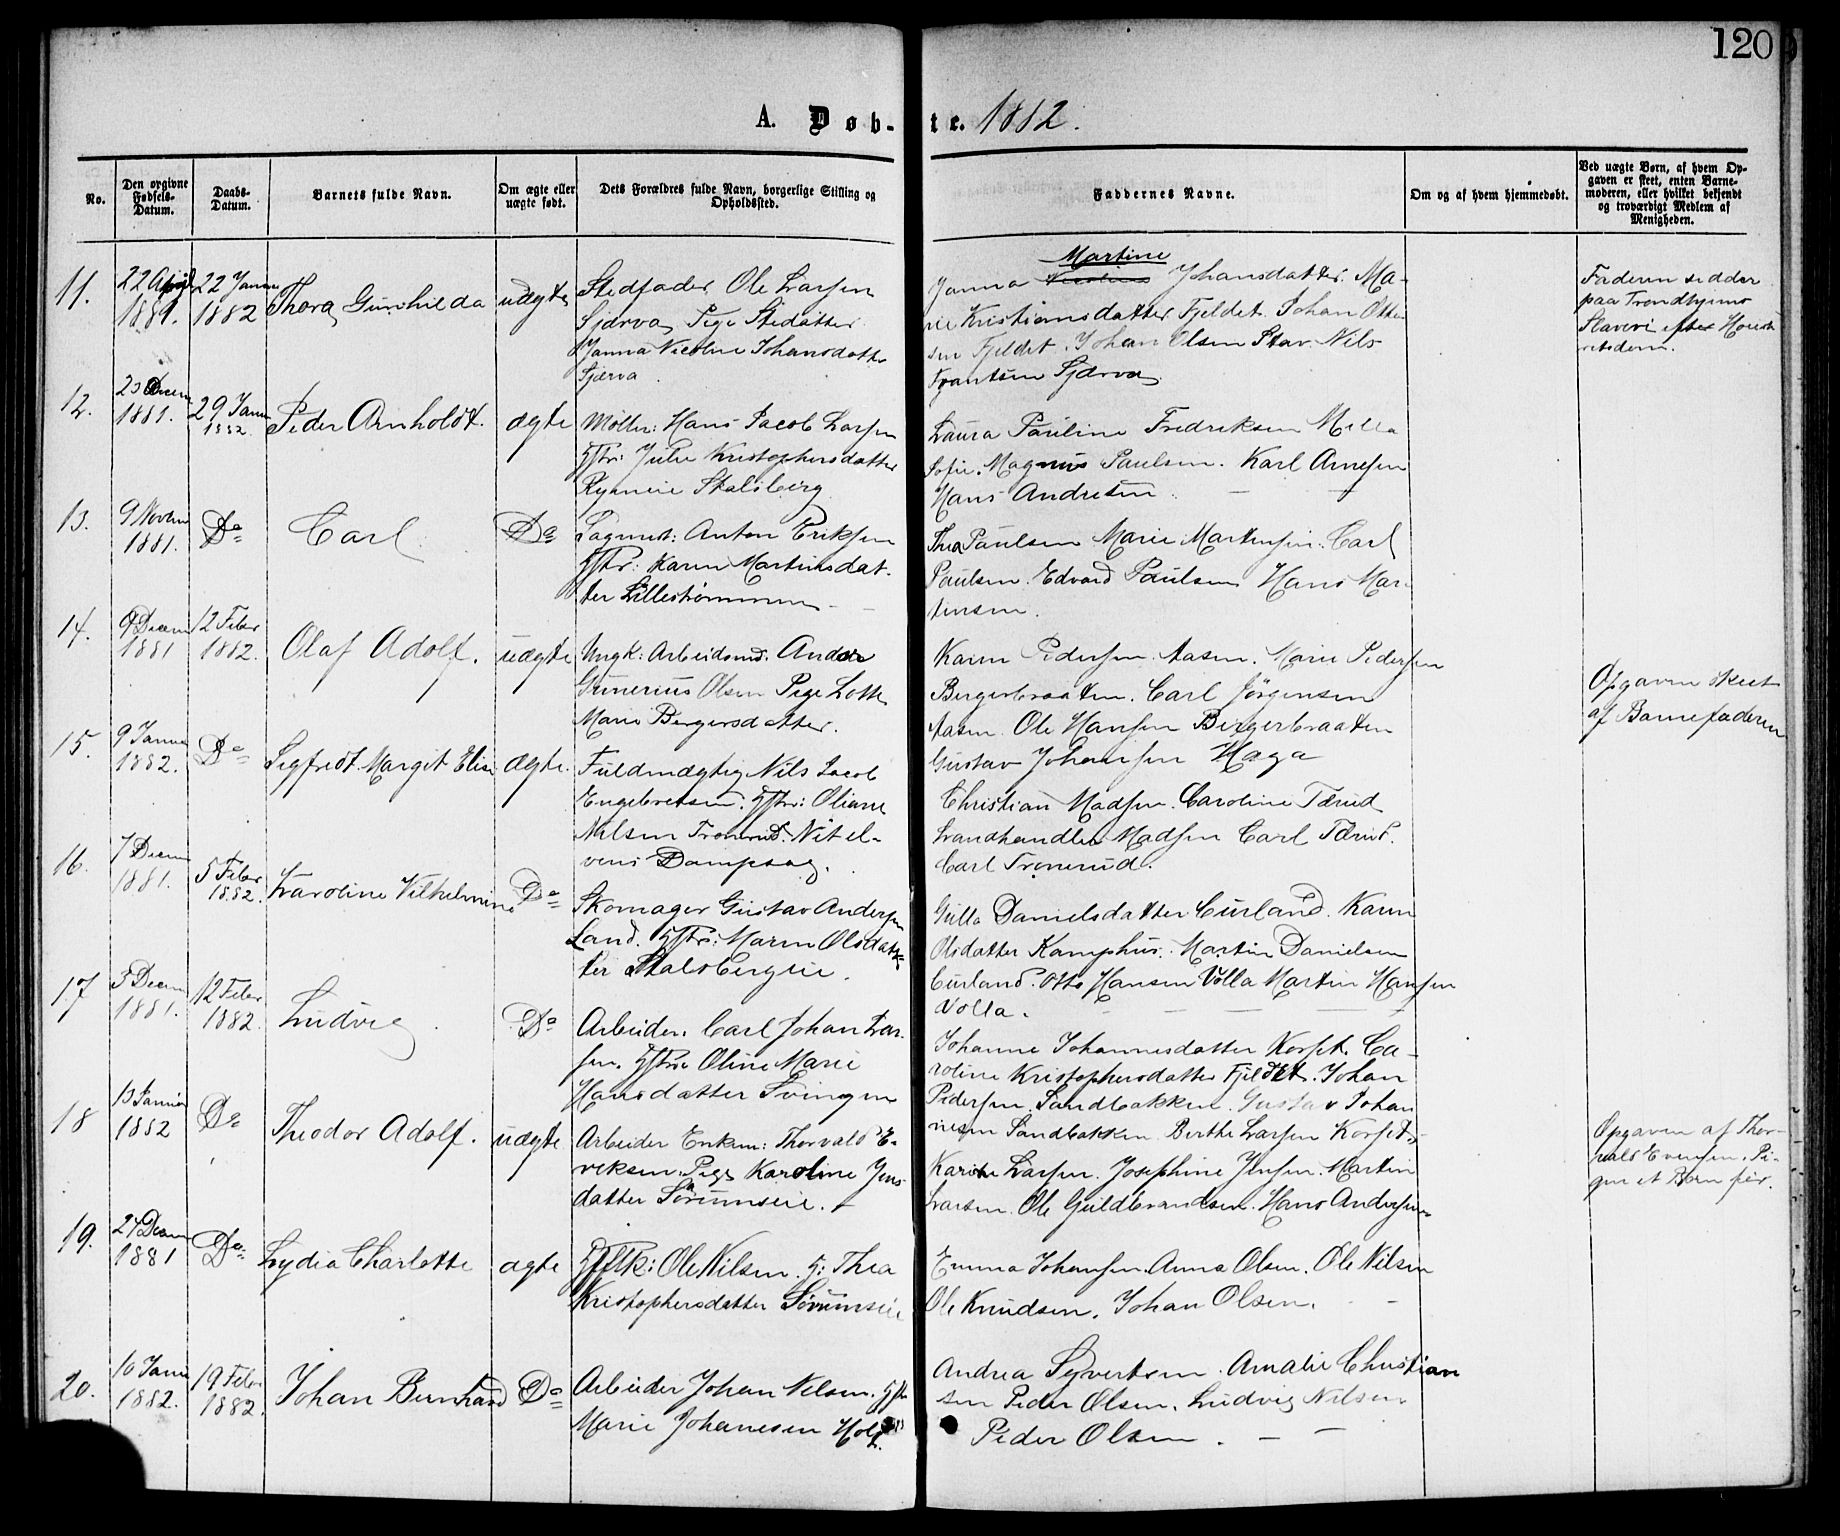 120
A. Døb- te. 1882.
No.
Den opgivne Fødsels-Datum.
Daabs-Datum.
Barnets fulde Navn.
Om ægte eller uægte født.
Dets Forældres fulde Navn, borgerlige Stilling og Opholdssted.
Faddernes Navne.
Om og af hvem hjemmedøbt.
Ved uægte Børn, af hvem Opgaven er skeet, enten Barnemoderen, eller hvilket bekjendt og troværdigt Medlem af Menigheden.
11.
22 April
1881.
22 Janu
1882
Thora Gunhilda
uægte
Stedfader Ole Larsen
Sjærva, Pige Stedatter
Janna Nicoline Johansdatter
Sjærva.
Martine
Janna Nicoline Johansdatter. Ma-
rie Kristiansdatter Fjeldet. Johan Otte
sen Fjeldet. Johan Olsen Stav. Nils
Frantsen Sjærva
Faderen sidder
paa Trondhjems
Slaveri efter
retsdom.
12.
1881.
29 Janu
1882
Peder Arnholdt.
ægte
Møller: Hans Jacob Larsen
Hstr: Julie Kristophersdatter
Skalsberg
Laura Pauline Fredriksen Milla
Sofie. Magnus Paulsen. Karl Arnesen
Hans Andresen. — —
13.
9 Novbr
1881.
Do
Carl
Do
Sagmst: Anton Eriksen
Hstr: Karen Martinsdat-
ter Lillestrømmen —
Thea Paulsen Marie Martensen. Carl
Paulsen. Edvard Paulsen Hans Mar-
tensen.
14.
9 Decem
1881
12 Febr
1882.
Olaf Adolf.
uægte
Ungk: Arbeidsmd. Anders
Gunerius Olsen Pige Lotte
Marie Bergersdatter.
Karen Pedersen. Aasen. Marie Pedersen
Bergerbraaten. Carl Jörgensen
Aasen. Ole Hansen Bergerbraaten
Gustav Johansen Haga
Opgaven skeet
af Barnefaderen
15.
9 Janua
1882.
Do
Sigfredt Margit Elise
ægte.
Fuldmægtig Nils Jacob
Engebretsen. Hstr: Oliane
Nilsen Tronrud. Nitel-
vens Dampsag.
Christian Madsen. Caroline Tærud
Landhandler Madsen Carl Tærud.
Carl Tronerud.
16.
7 Decem
1881.
5 Febr
1882.
Karoline Vilhelmine
Do
Skomager Gustav Andersen
Land. Hstr: Maren Olsdat-
ter Skalsbergeie.
Gulla Danielsdatter Curland. Karen
Olsdatter Kamphus. Martin Danielsen
Curland. Otto Hansen Volla Martin Hansen
Volla. — — — — —
17
5 Decem
1881.
12 Febr
1882.
Ludvig.
Do
Arbeider. Carl Johan Lar-
sen. Hstr: Oline Marie
Hansdatter Svingen
Johanne Johannesdatter Korset. Ca-
roline Kristophersdatter Fjeldet. Johan
Pedersen. Sandbakken. Gustav Johan
nesen Sandbakken
18
13 Januar
1882
Do
Theodor Adolf.
uægte
Arbeider Enkem: Thorvald E-
veksen. Pige Karoline Jens-
datter Sørumseie.
Berthe Larsen Korset.
Karine Larsen. Josephine Jensen. Martin
Larsen. Ole Guldbrandsen. Hans Andersen
Opgaven af Thor-
vald Evensen. Pi-
gen et Barn før.
19.
27 Decem
1881
Do
Lydia Charlotte
ægte
Gftk: Ole Nilsen. H: Thea
Kristophersdatter Sørumseie
Emma Johansen. Anna Olsen. Ole Nilsen
Ole Knudsen. Johan Olsen. —
20.
10 Janu
1882.
19 Febr
1882.
Johan Bernhard
Do
Arbeider Johan Nilsen. Hstr
Marie Johanesen Holt
Andrea Syvertsen. Amalie Christian
sen Peder Olsen. Ludvig Nilsen
Peder Olsen. — —